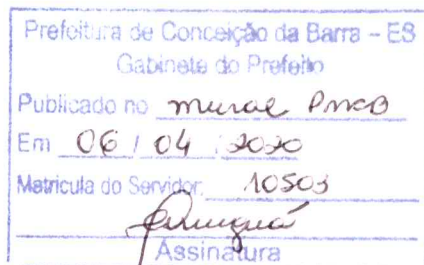 Prefeitura de Conceição da Barra – ES
Gabinete do Prefeito
Publicado no mural PMCB
Em 06 / 04 / 2020
Matricula do Servidor: 10503
Assinatura